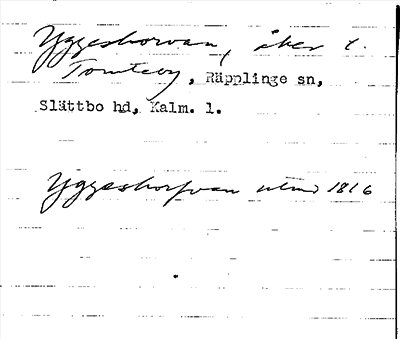 Yggeshorvan, åker t.
Tomteby, Räpplinge sn,
Slättbo hd, Kalm. l.
Yggeshorfvan utmd 1816